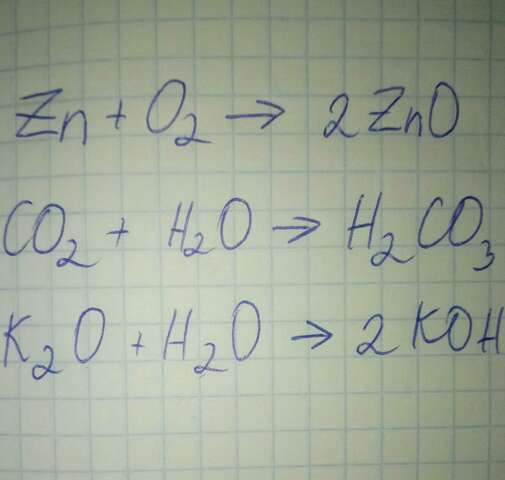 Zn + O₂ → 2ZnO
CO₂ + H₂O → H₂CO₃
K₂O + H₂O → 2KOH